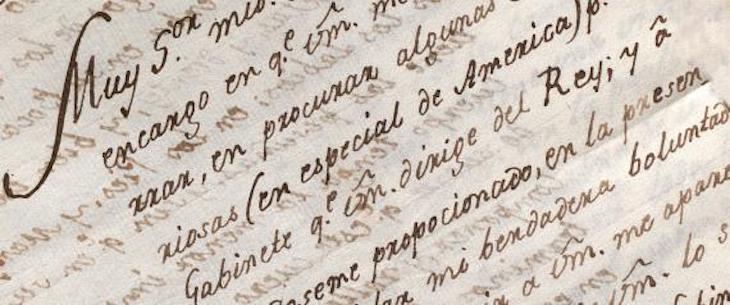 Muy S.or mio.
encargo en q.e vm̃. me
rrar, en procurar algunas
riosas (en especial de America) p.
Gabinete q.e vm̃. dirige del Rey; y â
seme propocionado, en la presen
mi berdadera boluntad
a vm̃. me apare
vm̃. lo s